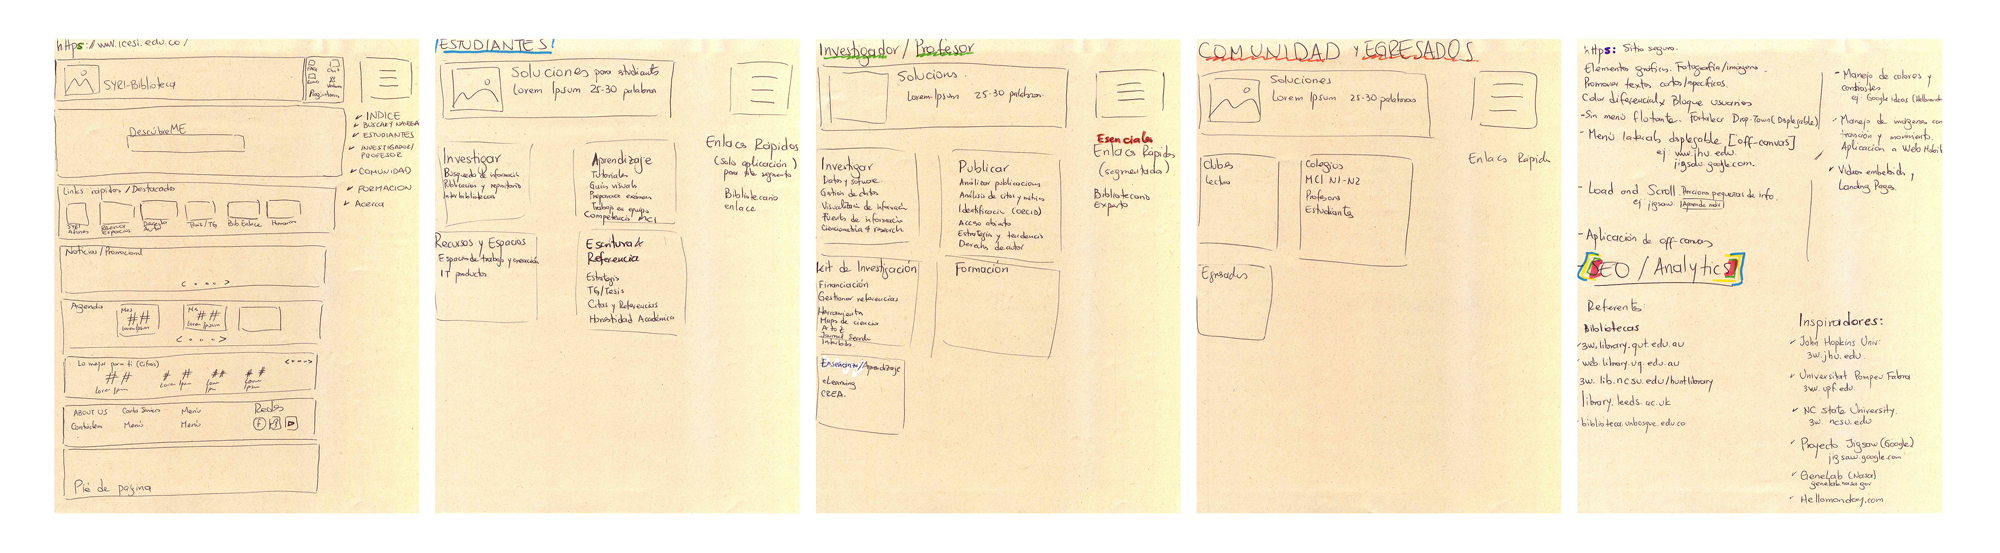 https://www.icesi.edu.co/
SYRI-Biblioteca
FAQ
Chat
Pregúntanos
DescúbreME
✓ INDICE
✓ BUSCAR Y NAVEGA
✓ ESTUDIANTES
✓ INVESTIGADOR/
PROFESOR
✓ COMUNIDAD
✓ FORMACION
✓ Acerca
Links rápidos / Destacado
Reserva
Espacios
Derecho
Autor
Tesis/TG
Bib Enlace
Horarios
Noticias/Promocional
< - - - >
Agenda
Mes
##
Lorem Ipsum
Mes
##
Lorem Ipsum
< - - - >
Lo mejor para ti (Cifras)
< - - - >
## ## ## ##
Lorem Ipsum
Lorem Ipsum
Lorem
Ipsum
Lorem
Ipsum
ABOUT US
Menú
Redes
Contacten
Menú
Menú
Pié de página
ESTUDIANTES
Soluciones para studiants
Lorem Ipsum 25-30 palabras
Enlaces Rápidos
(solo aplicación)
para este segmento
Bibliotecario
enlace
Investigar
Búsqueda de información
Publicación y repositorio
Interbibliotecas
Aprendizaje
Tutoriales
Guías visuals
Preparación examen
Trabajo en equipo
Competencia MCI
Recursos y Espacios
Espacios de trabajo y creación
IT productos
Escritura &
Referencia
Estrategias
TG/Tesis
Citas y Referencias
Honestidad Académica
Investigador / Profesor
Solucions.
Lorem-Ipsum 25-30 palabras.
Esenciales
Enlaces Rápidos
(segmentados)
Bibliotecario
Experto
Investigar
Datos y software
Gestión de datos
Visualización de información
Fuentes de información
Cienciometría & research.
Publicar
Analizar publicacions
Análisis de citas y métrica
Identificación (ORCID)
Acceso abierto
Estrategia y tendencia
Derechos de autor
Kit de Investigación
Financiación
Gestionar referencias
Herramientas
Mapas de ciencia
A to Z
Journal Search
Formación
Enseñanza/Aprendizaje
eLearning
CREA.
COMUNIDAD y EGRESADOS
Soluciones
Lorem Ipsum 25-30 palabras
Enlaces Rápidos
Clubes
Lectura
Colegios
MCI N1-N2
Profesores
Estudiantes
Egresados
https: Sitio seguro.
Elementos gráficos. Fotografía/imágenes.
Promover textos cortos/específicos.
Color diferencial x Bloque usuarios
-Sin menú flotante. Fortalecer Drop-Town (Desplegable)
- Menú lateral desplegable [off-canvas]
ej www.jhu.edu
jigsaw.google.com.
- Load and Scroll Porciones pequeñas de info.
ej jigsaw Aprende más
-Aplicación de off-canvas
SEO / Analytics
Referente:
Bibliotecas
3w.library.qut.edu.au
web library.uq.edu.au
3w.lib.ncsu.edu/huntlibrary
library.leeds.ac.uk
biblioteca.unbosque.edu.co
- Manejo de colores y
contrastes
ej Google ideas
- Manejo de imágenes con
transición y movimiento.
Aplicación a Web Mobil
✓ Videos embebidos,
Landing Pages.
Inspiradores:
✓ John Hopkins Univ:
3w.jhu.edu.
✓ Universitat Pompeu Fabra
3w.upf.edu.
✓ NC State University.
3w.ncsu.edu
✓ Proyecto Jigsaw (Google)
jigsaw.google.com
✓ GeneLab (Nasa)
genelab.nasa.gov
✓ Hellomonday.com